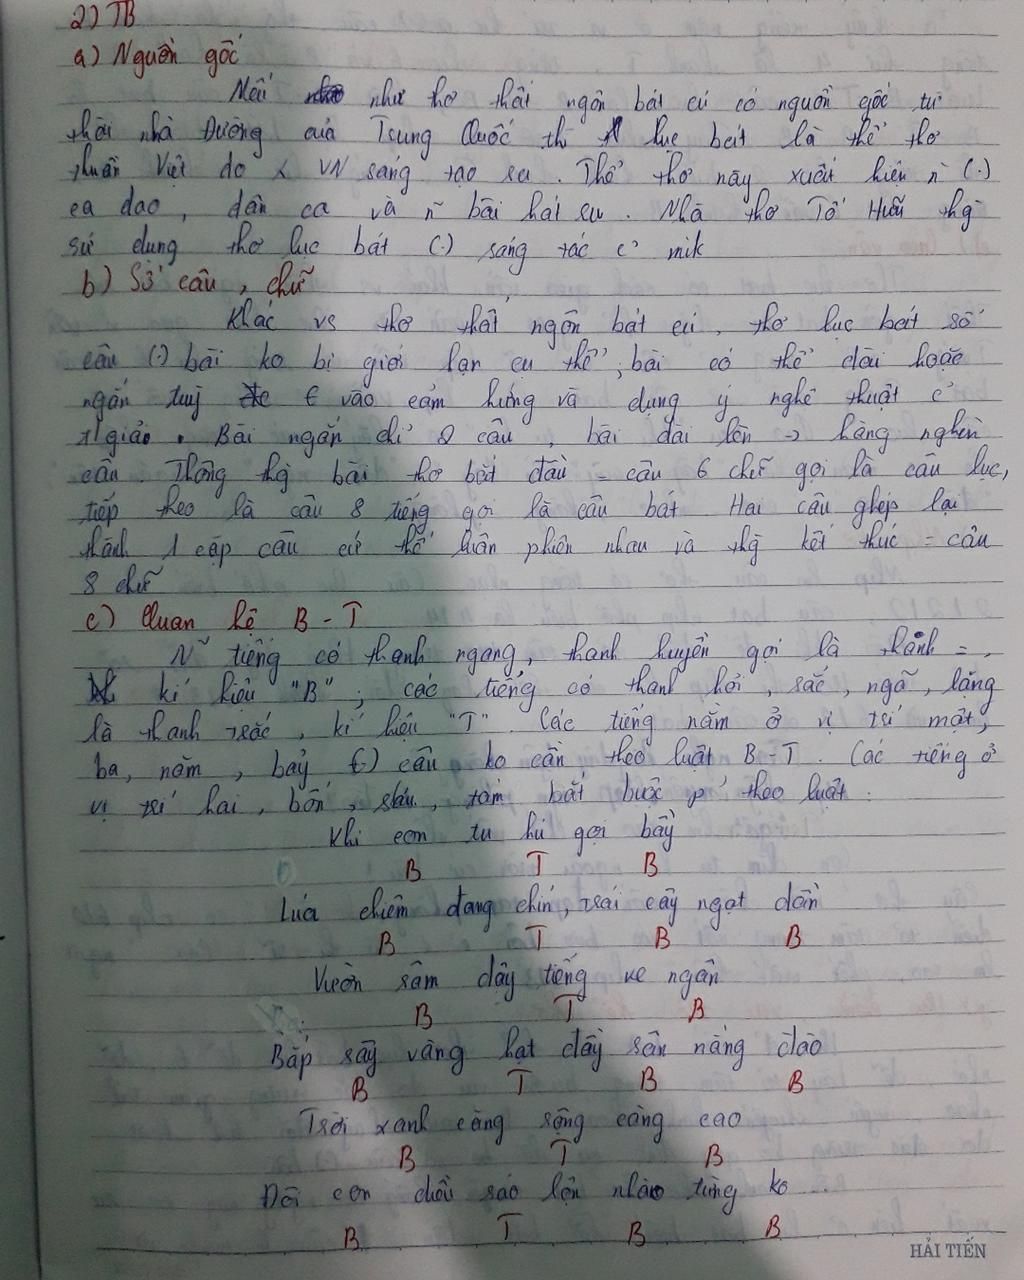 2) TB
a) Nguồn gốc
Nếu như thơ thất ngôn bát cú có nguồn gốc từ
thời nhà Đường của Trung Quốc thì lục bát là thể thơ
thuần Việt do VN sáng tạo ra. Thể thơ này xuất hiện n~ (.)
ca dao, dân ca và n~ bài hát ru. Nhà thơ Tố Hữu thg
sử dụng thơ lục bát (.) sáng tác c' mik
b) Số câu, chữ
Khác vs thơ thất ngôn bát cú, thơ lục bát số
câu (.) bài ko bị giới hạn cụ thể, bài có thể dài hoặc
ngắn tuỳ € vào cảm hứng và dụng ý nghệ thuật c'
giả. Bài ngắn chỉ 2 câu, bài dài lên → hàng nghìn
câu. Thông thg bài thơ bắt đầu = câu 6 chữ gọi là câu lục,
tiếp theo là câu 8 tiếng gọi là câu bát Hai câu ghép lại
thành 1 cặp câu cứ thế luân phiên nhau và thg kết thúc = câu
8 chữ
c) Quan hệ B - T
N~ tiếng có thanh ngang, thanh huyền gọi là thanh = ,
kí hiệu "B"; các tiếng có thanh hỏi, sắc, ngã, nặng
là thanh trắc, kí hiệu "T". Các tiếng nằm ở vị trí một,
ba, năm, bảy (.) câu ko cần theo luật B-T. Các tiếng ở
vị trí hai, bốn, sáu, tám bắt buộc p' theo luật:
Khi con tu hú gọi bầy
B T B
Lúa chiêm đang chín, trái cây ngọt dần
B T B B
Vườn râm dậy tiếng ve ngân
B T B
Bắp rây vàng hạt đầy sân nắng đào
B T B B
Trời xanh càng rộng càng cao
B T B
Đôi con diều sáo lộn nhào từng ko
B T B B
HẢI TIẾN